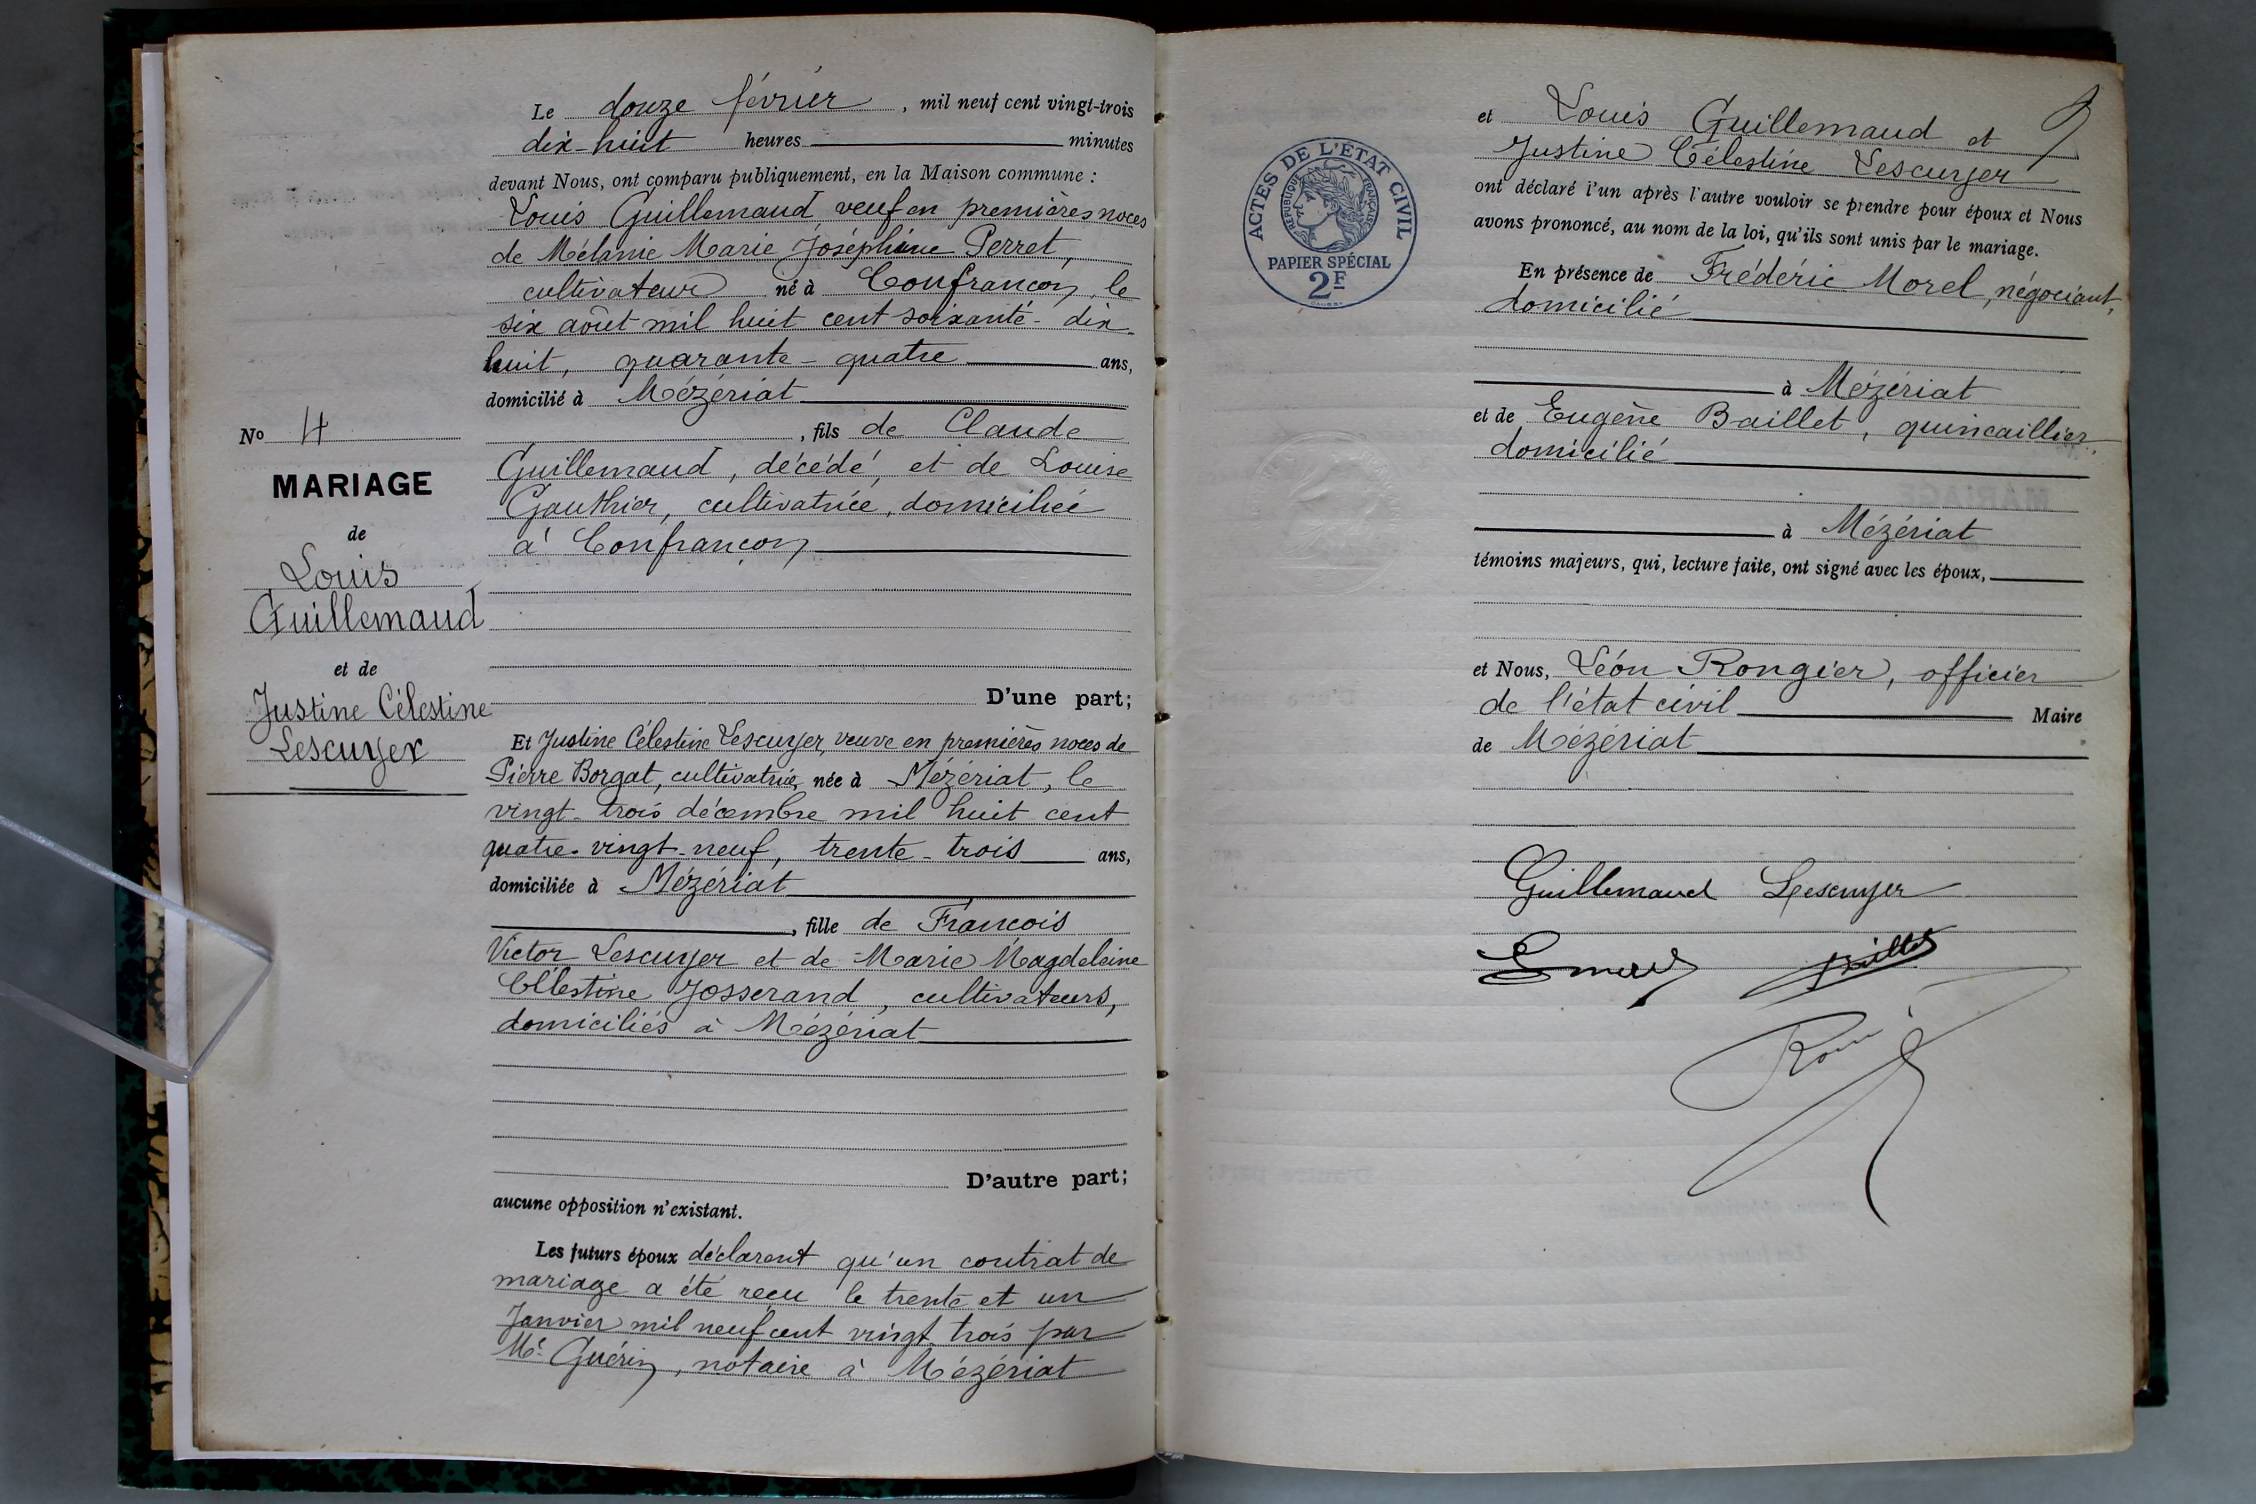 Le douze février, mil neuf cent vingt-trois
dix-huit heures minutes
devant Nous, ont comparu publiquement, en la Maison commune :
Louis Guillemaud veuf en premières noces
de Mélanie Marie Joséphine Perret,
cultivateur né à Confrançon, le
six août mil huit cent soixante-dix
huit, quarante-quatre ans,
domicilié à Mézériat
, fils de Claude
Guillemaud, décédé, et de Louise
Gauthier, cultivatrice, domiciliée
à Confrançon
D'une part;
No 4
MARIAGE
de
Louis
Guillemaud
et de
Justine Célestine
Lescuyer
Et Justine Célestine Lescuyer, veuve en premières noces de
Pierre Borgat, cultivatrice, née à Mézériat, le
vingt-trois décembre mil huit cent
quatre-vingt-neuf, trente-trois ans,
domiciliée à Mézériat
, fille de François
Victor Lescuyer et de Marie Magdeleine
Célestine Josserand, cultivateurs,
domiciliés à Mézériat
D'autre part;
aucune opposition n'existant.
Les futurs époux déclarent qu'un contrat de
mariage a été reçu le trente et un
Janvier mil neuf cent vingt trois par
Me Guérin, notaire à Mézériat
et Louis Guillemaud et
Justine Célestine Lescuyer
ont déclaré l'un après l'autre vouloir se prendre pour époux et Nous
avons prononcé, au nom de la loi, qu'ils sont unis par le mariage.
En présence de Frédéric Morel, négociant,
domicilié
à Mézériat
et de Eugène Baillet, quincaillier,
domicilié
à Mézériat
témoins majeurs, qui, lecture faite, ont signé avec les époux,
et Nous, Léon Rongier, officier
de l'état civil Maire
de Mézériat
Guillemaud Lescuyer
Baillet
ACTES DE L'ETAT CIVIL
RÉPUBLIQUE FRANÇAISE
PAPIER SPÉCIAL
2F